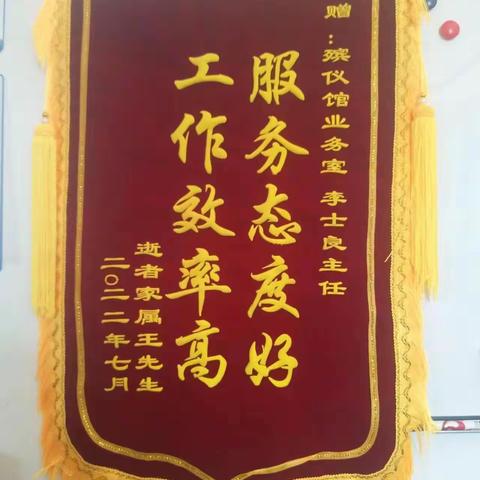 赠：殡仪馆业务室 李士良主任
服务态度好
工作效率高
逝者家属王先生
二〇二二年七月